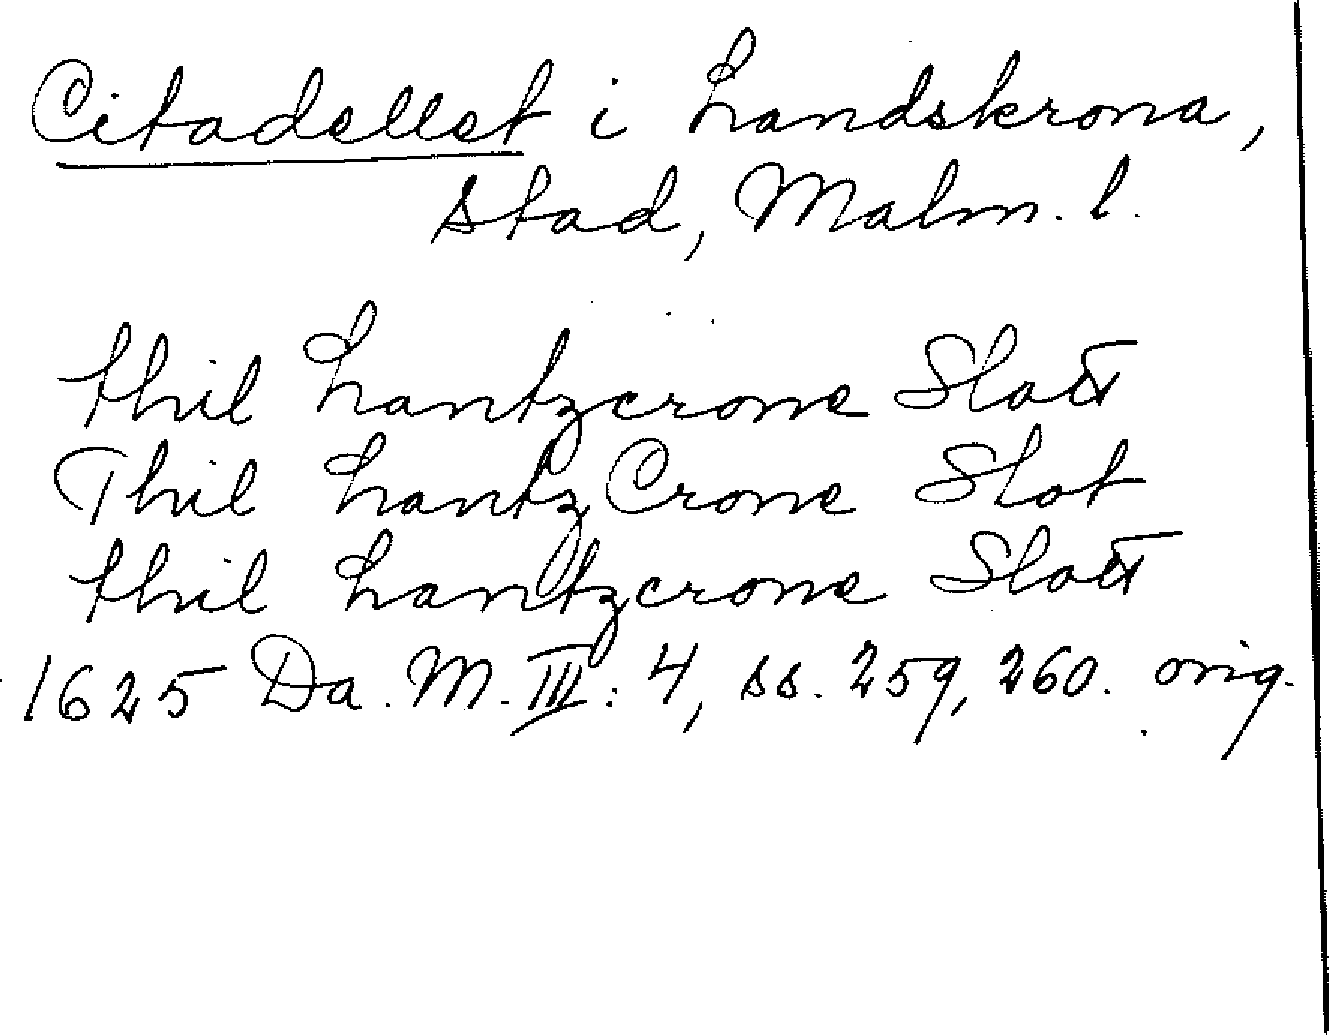 Citadellet i Landskrona,
stad, Malm. l.
thil Lantzcrone Slott
Thil LantzCrone Slot
thil Lantzcrone Slott
1625 Da. M. III: 4, ss. 259, 260. orig.